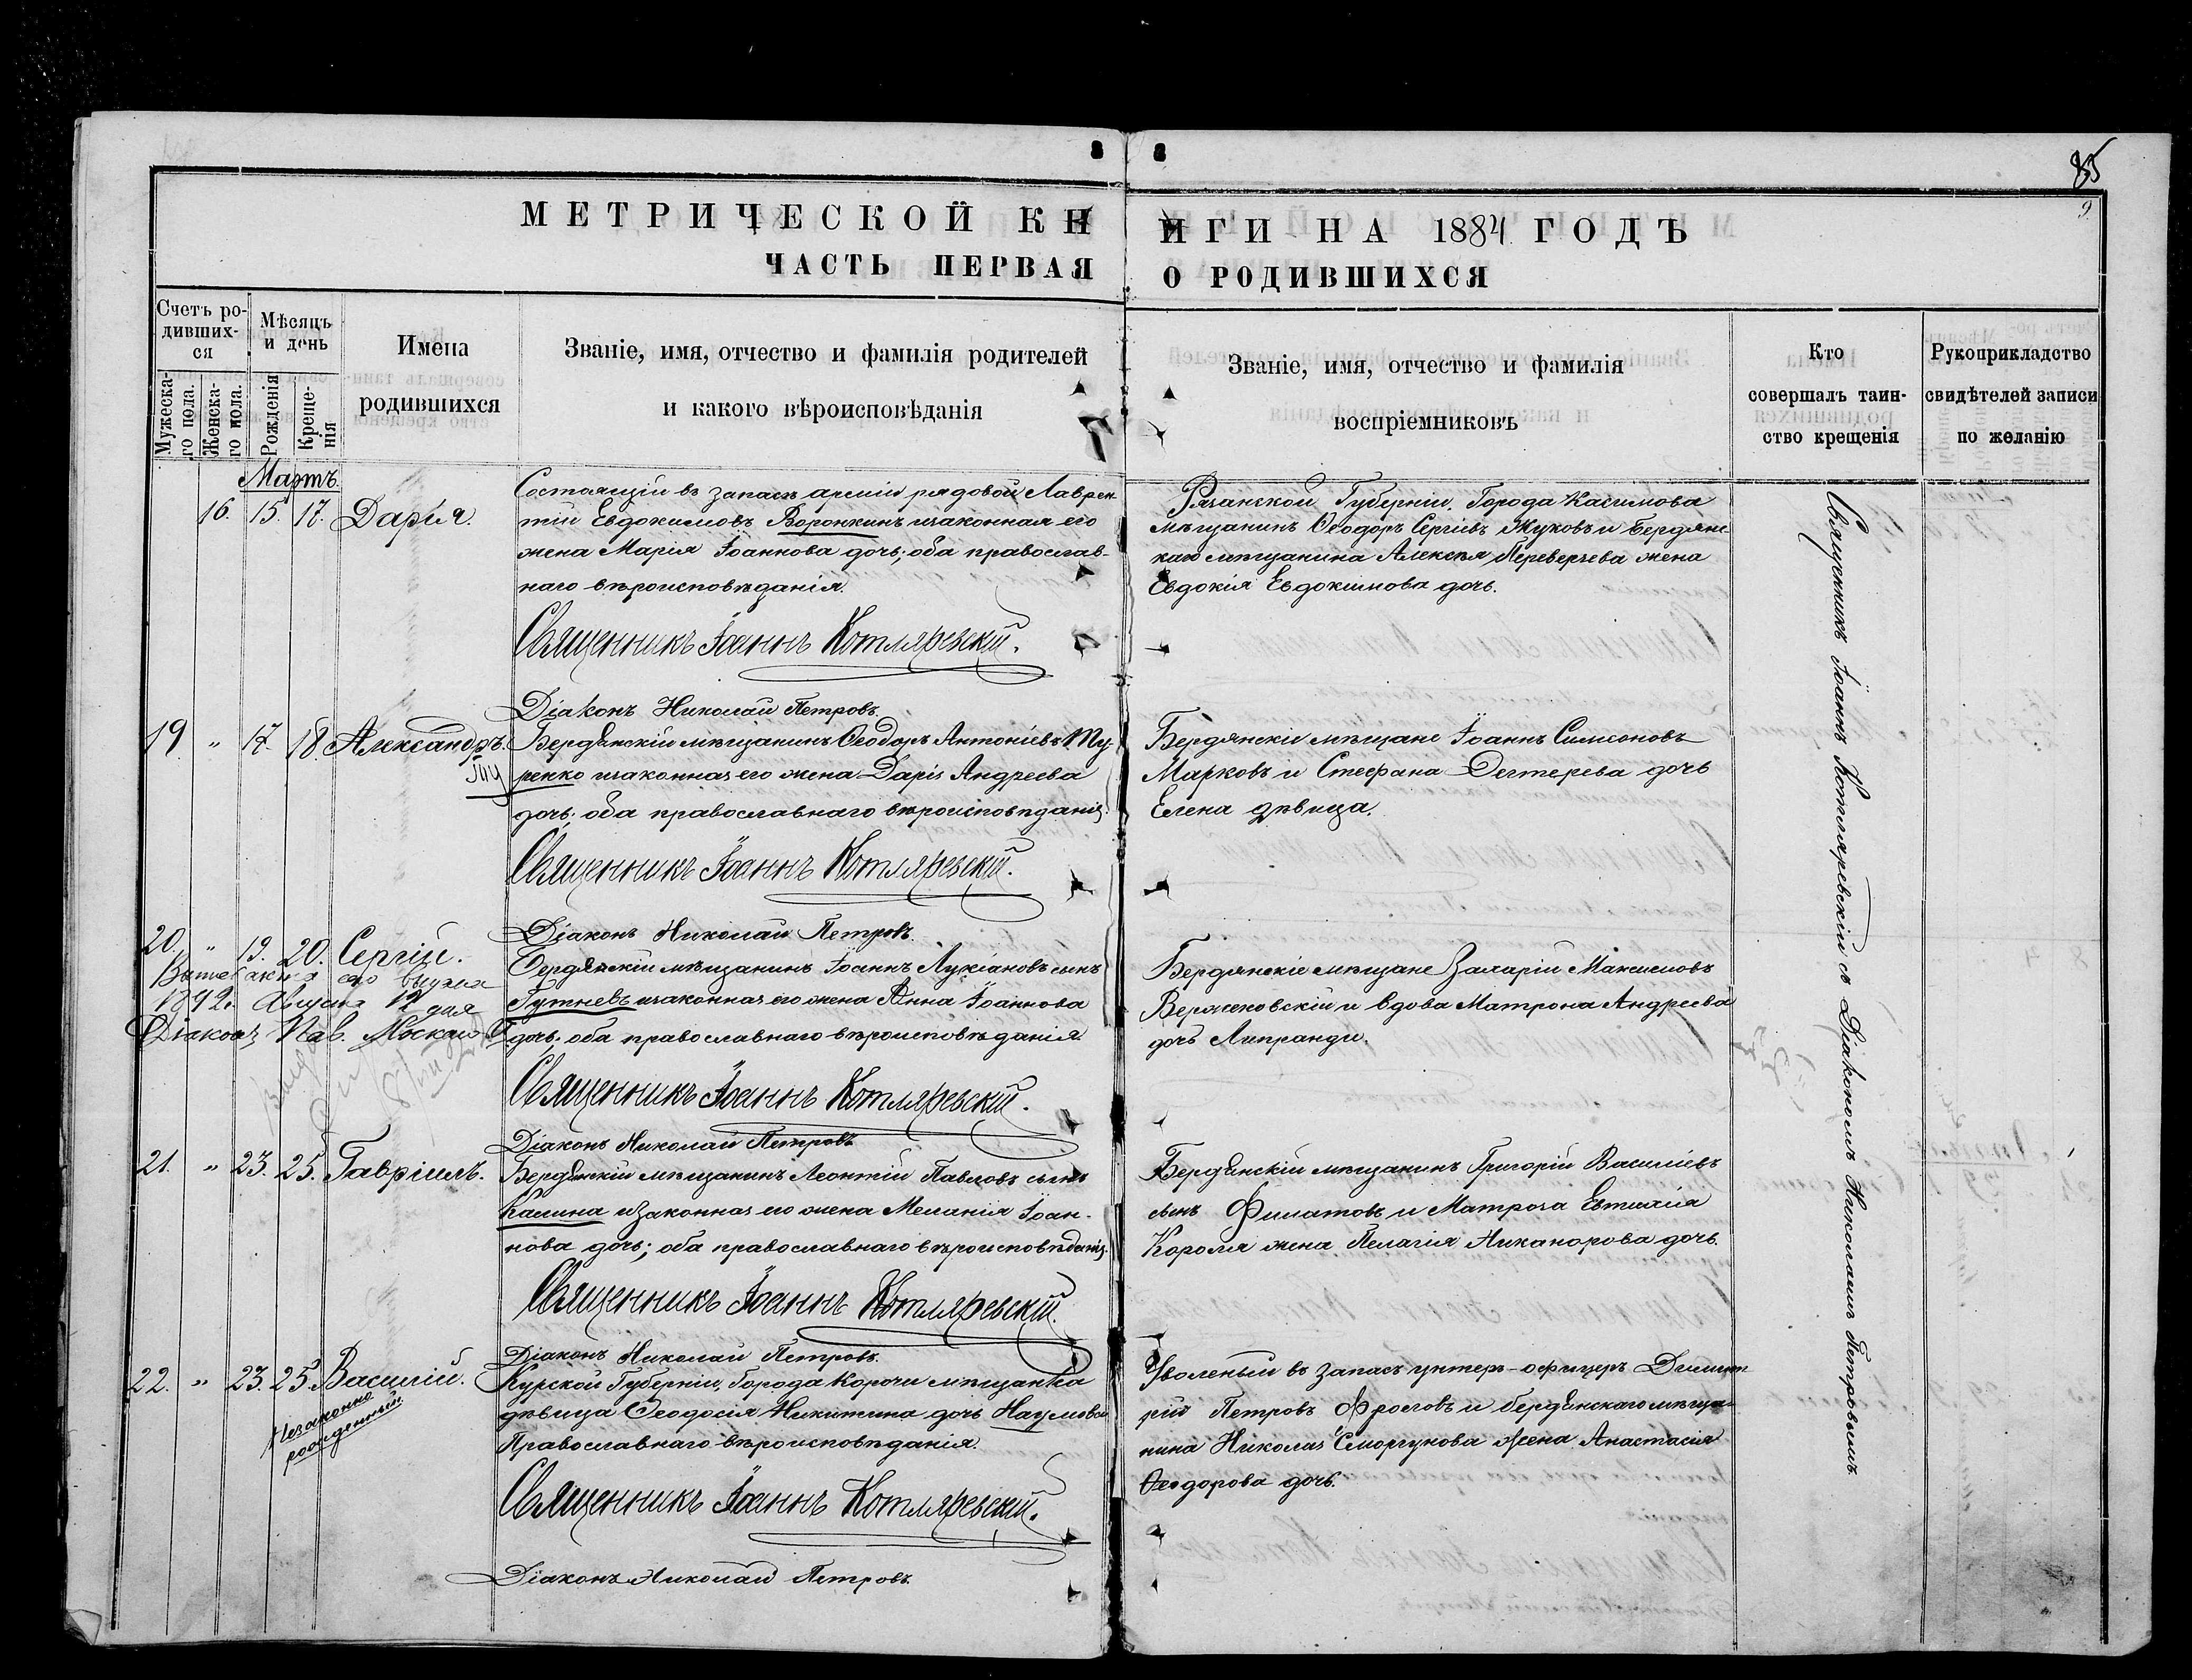 85
9.
МЕТРИЧЕСКОЙ КНИГИ НА 1884 ГОДЪ
ЧАСТЬ ПЕРВАЯ О РОДИВШИХСЯ
Счетъ ро-
дивших-
ся
Мужеска-
го пола.
Женска-
го пола.
Мѣсяцъ
и день
Рожденія
Креще-
нія
Имена
родившихся
Званіе, имя, отчество и фамилія родителей
и какого вѣроисповѣданія
Званіе, имя, отчество и фамилія
воспріемниковъ
Кто
совершалъ таин-
ство крещенія
Рукоприкладство
свидѣтелей записи
по желанію
Мартъ.
16. 15. 17. Дарія.
Состоящій въ запасѣ арміи рядовой Лаврен-
тій Евдокимовъ Воронкинъ и законная его
жена Марія Іоаннова дочь; оба православ-
наго вѣроисповѣданія.
Священникъ Іоаннъ Котляревскій.
Діаконъ Николай Петровъ.
Рязанской Губерніи, Города Касимова
мѣщанинъ Ѳеодоръ Сергіевъ Жуковъ и Бердянс-
каго мѣщанина Алексѣя Переверзева жена
Евдокія Евдокимова дочь.
19. " 17. 18. Александръ.
Бердянскій мѣщанинъ Ѳеодоръ Антоніевъ Ту-
ренко и законная его жена Дарія Андреева
дочь; оба православнаго вѣроисповѣданія.
Священникъ Іоаннъ Котляревскій.
Діаконъ Николай Петровъ.
Бердянскіе мѣщане Іоаннъ Симеоновъ
Марковъ и Стефана Дегтерева дочь
Елена дѣвица.
20. " 19. 20. Сергій.
1892. Августа 12 дня
Діаконъ Пав.
Бердянскій мѣщанинъ Іоаннъ Лукіановъ сынъ
Гутневъ и законная его жена Анна Іоаннова
дочь; оба православнаго вѣроисповѣданія.
Священникъ Іоаннъ Котляревскій.
Діаконъ Николай Петровъ
Бердянскіе мѣщане Захарій Максимовъ
Вержековскій и вдова Матрона Андреева
дочь Липранди.
21. " 23. 25. Гавріилъ.
Бердянскій мѣщанинъ Леонтій Павловъ сынъ
Калина и законная его жена Меланія Іоан-
нова дочь; оба православнаго вѣроисповѣданія.
Священникъ Іоаннъ Котляревскій.
Діаконъ Николай Петровъ.
Бердянскій мѣщанинъ Григорій Василіевъ
сынъ Филатовъ и Матроса Евтихія
Короля жена Пелагія Никанорова дочь.
22. " 23. 25. Василій.
Незаконно
рожденный
Курской Губерніи, Города Корочи мѣщанка
дѣвица Ѳеодосія Никитина дочь Наумова
Православнаго вѣроисповѣданія.
Священникъ Іоаннъ Котляревскій.
Діаконъ Николай Петровъ.
Уволеный въ запасъ унтеръ-офицеръ Димит-
рій Петровъ Фроловъ и бердянскаго мѣща-
нина Николая Сморгунова жена Анастасія
Ѳеодорова дочь.
Священникъ Іоаннъ Котляревскій съ Діакономъ Николаемъ Петровымъ.